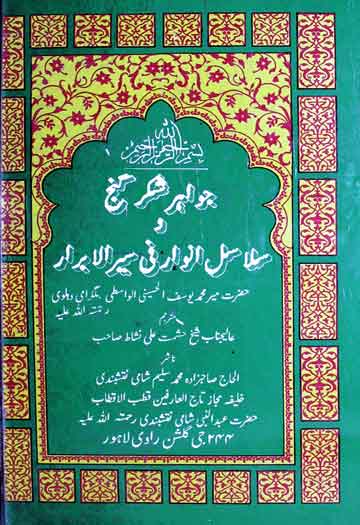 بسم اللہ الرحمن الرحیم
جواہر گنج
و
سلاسل انوار فی سیر الابرار
حضرت میر محمد یوسف الحسینی الواسطی بلگرامی دہلوی رحمتہ اللہ علیہ
مترجم
عالیجناب شیخ حشمت علی نشاط صاحب
ناشر
الحاج صاحبزادہ محمد سلیم شامی نقشبندی
خلیفہ مجاز تاج العارفین قطب الاقطاب
حضرت عبدالنبی شامی نقشبندی رحمتہ اللہ علیہ
۲۴۴ جی گلشن راوی لاہور